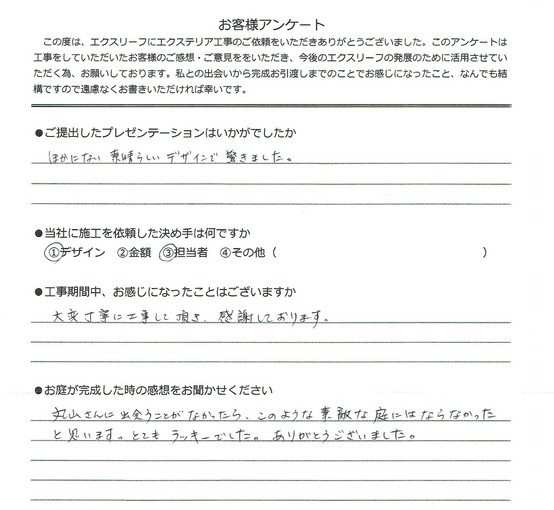 お客様アンケート
この度は、エクスリーフにエクステリア工事のご依頼をいただきありがとうございました。このアンケートは
工事をしていただいたお客様のご感想・ご意見をいただき、今後のエクスリーフの発展のために活用させてい
ただく為、お願いしております。私との出会いから完成お引渡しまでのことでお感じになったこと、なんでも結
構ですので遠慮なくお書きいただければ幸いです。
●ご提出したプレゼンテーションはいかがでしたか
ほかにない 素晴らしい デザインで 驚きました。
●当社に施工を依頼した決め手は何ですか
①デザイン ②金額 ③担当者 ④その他（ ）
●工事期間中、お感じになったことはございますか
大変丁寧に工事して頂き、感謝しております。
●お庭が完成した時の感想をお聞かせください
丸山さんに出会うことがなかったら、このような素敵な庭にはならなかった
と思います。とてもラッキーでした。ありがとうございました。